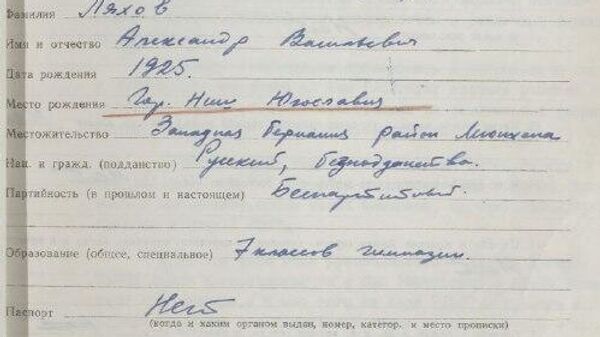 Фамилия Ляхов
Имя и отчество Александр Васильевич
Дата рождения 1925.
Место рождения Гор. Ниш Югославия
Местожительство Западная Германия район Мюнхена
Нац. и гражд. (подданство) Русский, безподданства.
Партийность (в прошлом и настоящем) Беспартийный.
Образование (общее, специальное) 7 классов гимназии.
Паспорт Нет
(когда и каким органом выдан, номер, категор. и место прописки)